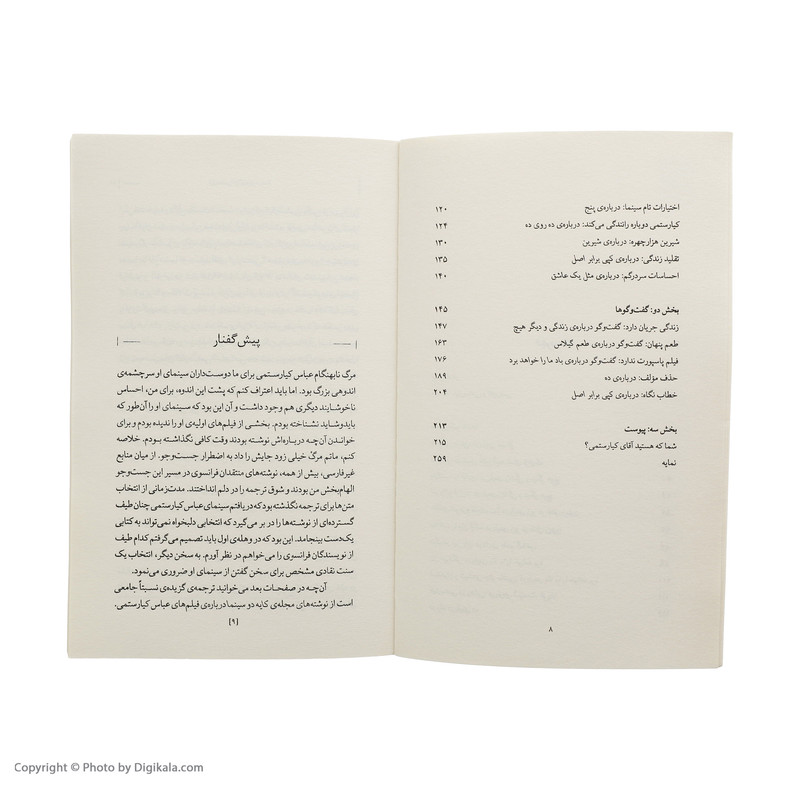 اختیارات تام سینما: درباره‌ی پنج ۱۲۰
کیارستمی دوباره رانندگی می‌کند: درباره‌ی ده روی ده ۱۲۴
شیرین هزارچهره: درباره‌ی شیرین ۱۳۰
تقلید زندگی: درباره‌ی کپی برابر اصل ۱۳۵
احساسات سردرگم: درباره‌ی مثل یک عاشق ۱۴۰
بخش دو: گفت‌وگوها ۱۴۵
زندگی جریان دارد: گفت‌وگو درباره‌ی زندگی و دیگر هیچ ۱۴۷
طعم پنهان: گفت‌وگو درباره‌ی طعم گیلاس ۱۶۳
فیلم پاسپورت ندارد: گفت‌وگو درباره‌ی باد ما را خواهد برد ۱۷۶
حذف مؤلف: درباره‌ی ده ۱۸۹
خطاب نگاه: درباره‌ی کپی برابر اصل ۲۰۴
بخش سه: پیوست ۲۱۳
شما که هستید آقای کیارستمی؟ ۲۱۵
نمایه ۲۵۹
۸
پیش‌گفتار
مرگ نابهنگام عباس کیارستمی برای ما دوست‌داران سینمای او سرچشمه‌ی
اندوهی بزرگ بود. اما باید اعتراف کنم که پشت این اندوه، برای من، احساس
ناخوشایند دیگری هم وجود داشت و آن این بود که سینمای او را آن‌طور که
بایدوشاید نشناخته بودم. بخشی از فیلم‌های اولیه‌ی او را ندیده بودم و برای
خواندن آن‌چه درباره‌اش نوشته بودند وقت کافی نگذاشته بودم. خلاصه
کنم، ماتم مرگ خیلی زود جایش را داد به اضطرار جست‌وجو. از میان منابع
غیرفارسی، بیش از همه، نوشته‌های منتقدان فرانسوی در مسیر این جست‌وجو
الهام‌بخش من بودند و شوق ترجمه را در دلم انداختند. مدت‌زمانی از انتخاب
متن‌ها برای ترجمه نگذشته بود که دریافتم سینمای عباس کیارستمی چنان طیف
گسترده‌ای از نوشته‌ها را در بر می‌گیرد که انتخابی دلبخواه نمی‌تواند به کتابی
یک‌دست بینجامد. این بود که در وهله‌ی اول باید تصمیم می‌گرفتم کدام طیف
از نویسندگان فرانسوی را می‌خواهم در نظر آورم. به سخن دیگر، انتخاب یک
سنت نقادی مشخص برای سخن گفتن از سینمای او ضروری می‌نمود.
آن‌چه در صفحات بعد می‌خوانید ترجمه‌ی گزیده‌ی نسبتاً جامعی
است از نوشته‌های مجله‌ی کایه دو سینما درباره‌ی فیلم‌های عباس کیارستمی.
[۹]
Copyright © Photo by Digikala.com